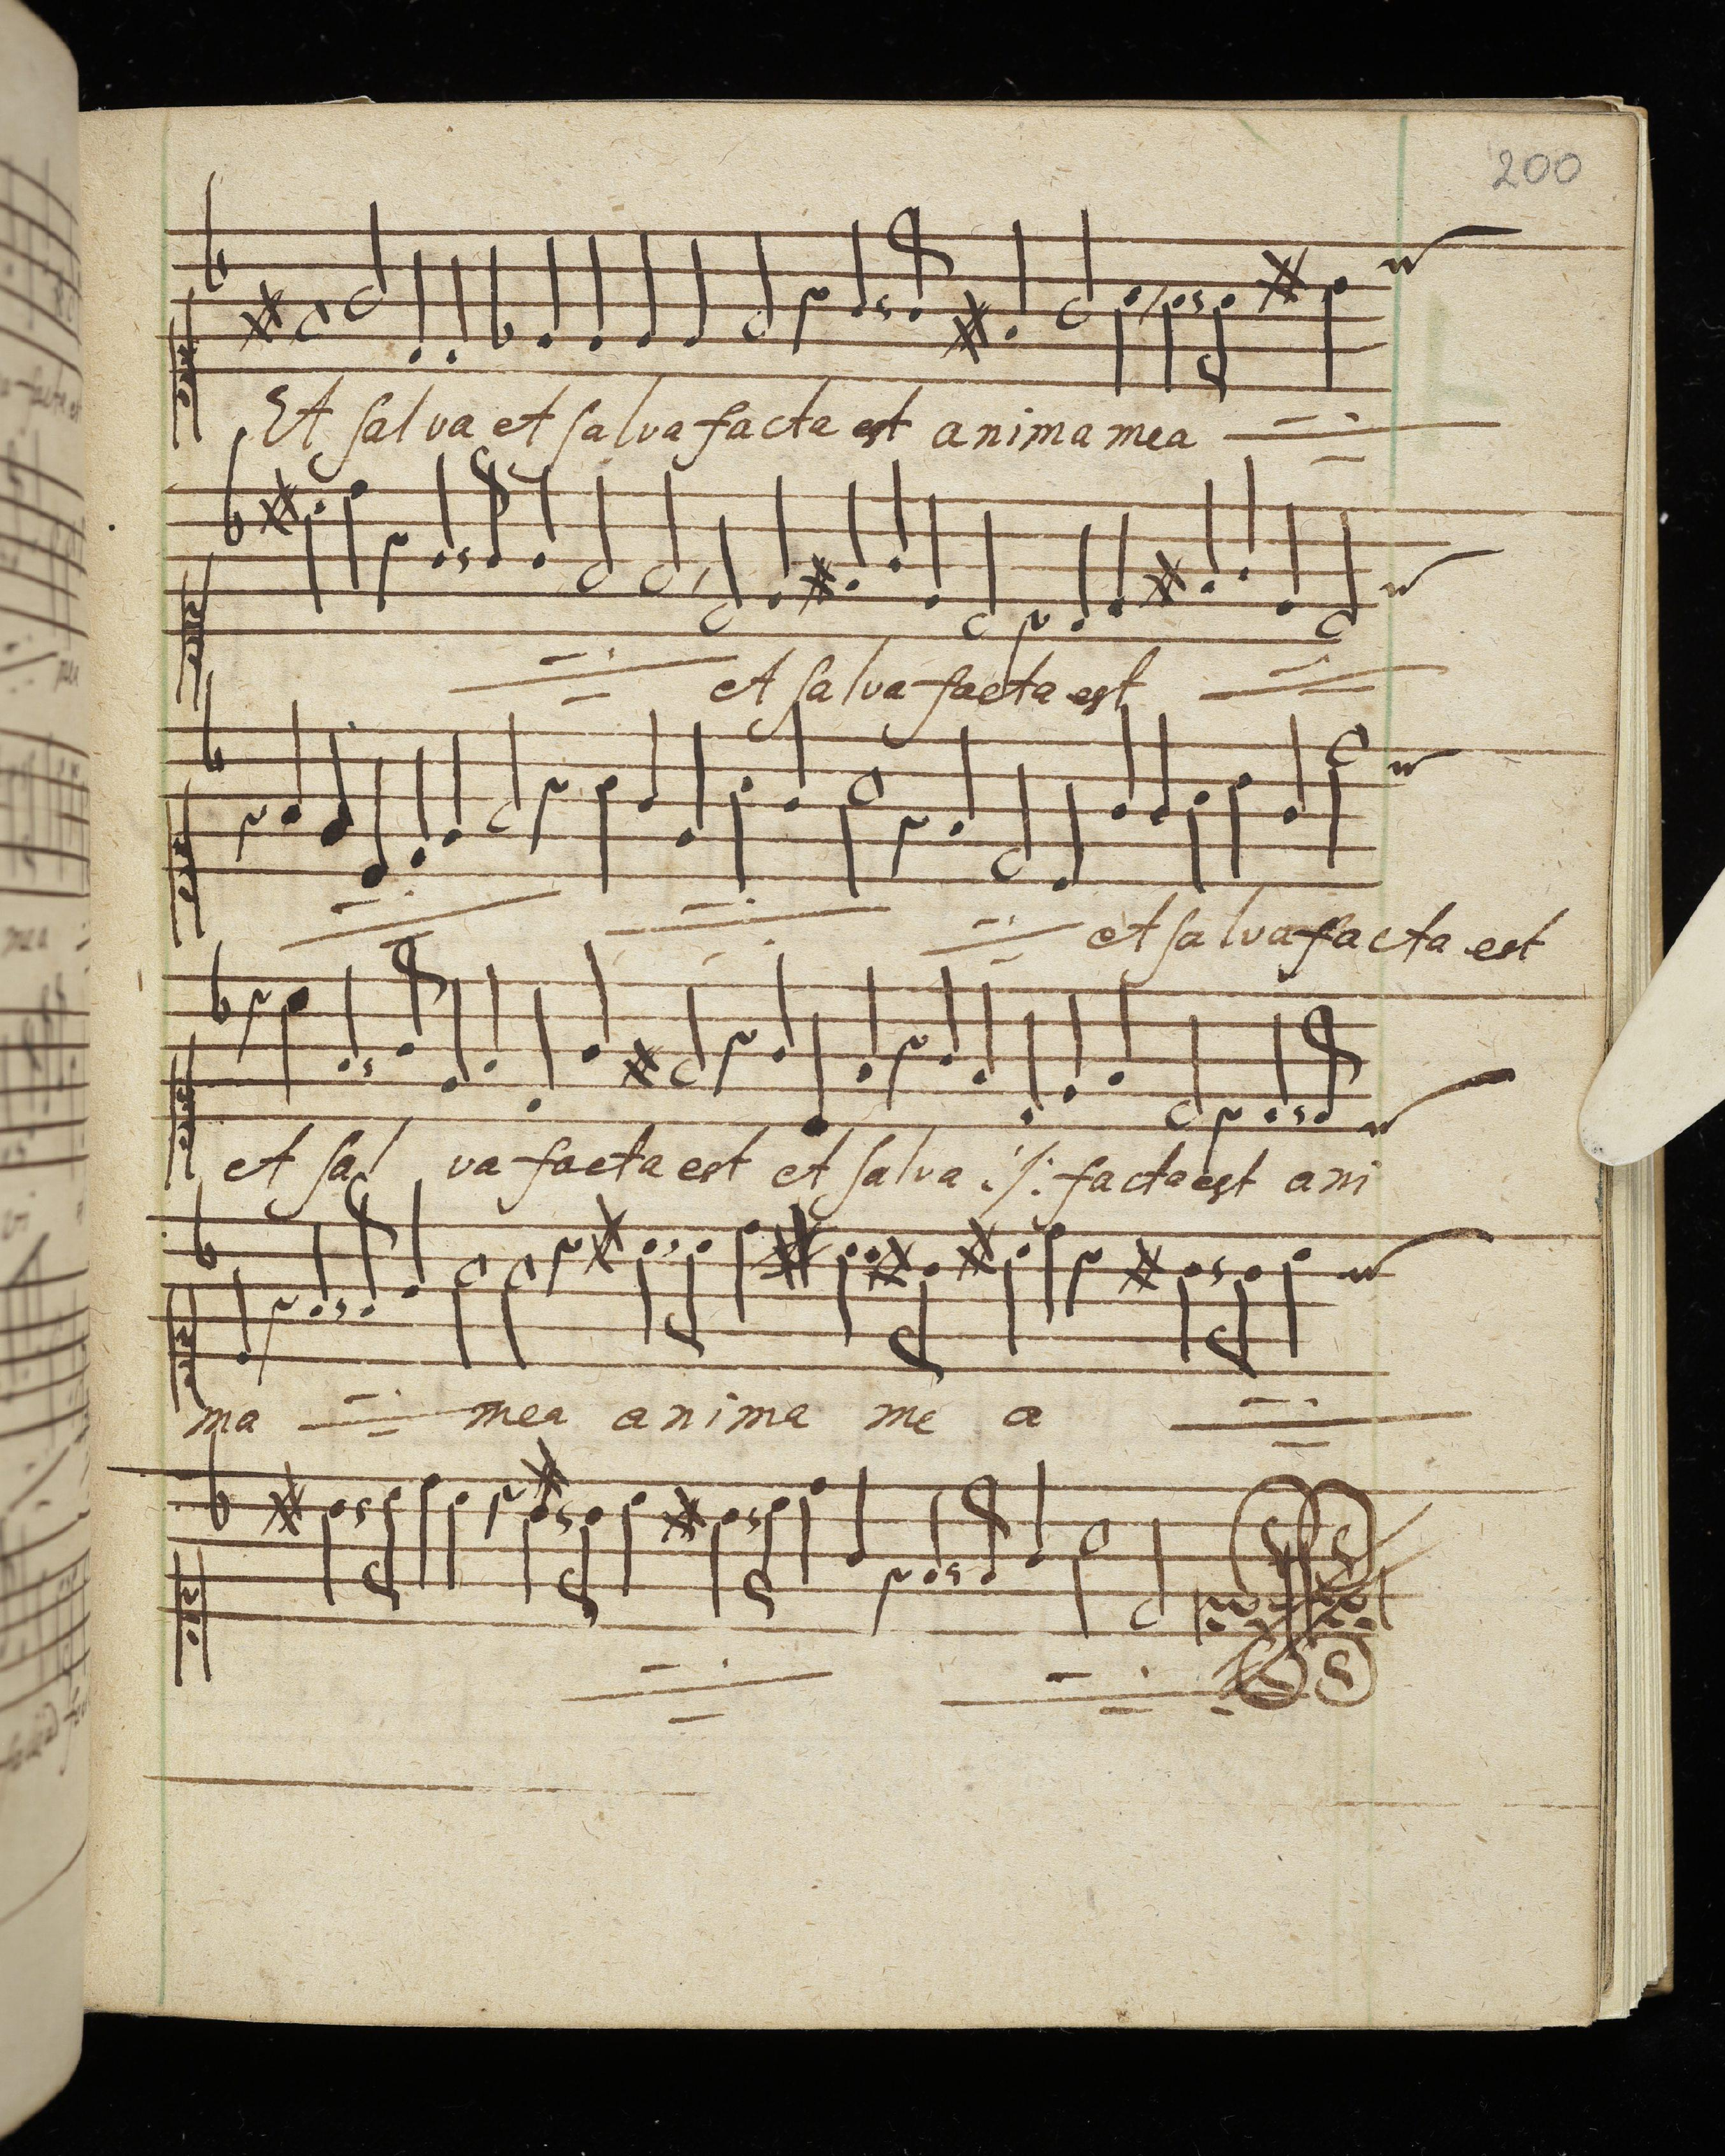 200
Et salva et salva facta est anima mea
et salva facta est
et salva facta est
et sal va facta est et salva ./. facta est ani
ma mea anima me a